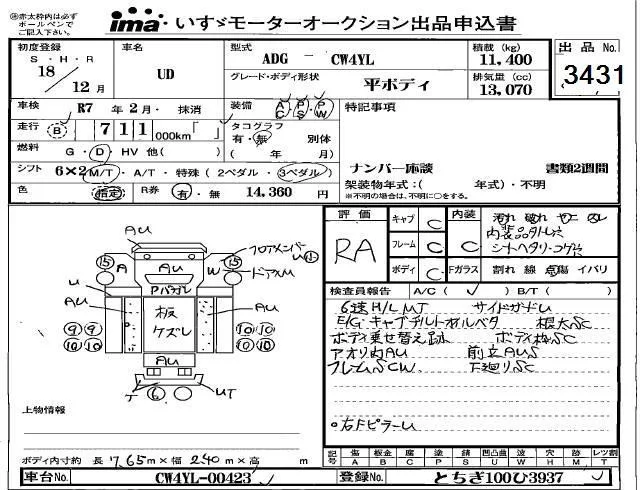 ◎赤太枠内は必ず
ボールペンで
ご記入下さい。
ima・いすゞモーターオークション出品申込書
初度登録
S・H・R
18
12月
車名
UD
型式
ADG － CW4YL
積載 (kg)
11,400
出品 No.
3431
グレード・ボディ形状
平ボディ
排気量 (cc)
13,070
車検 R7 年 2 月・抹消
装備 A/C P/S P/W
特記事項
走行 B 711 000km「 」
タコグラフ
有・無 別体
( 年 月)
燃料 G・D・HV 他( )
シフト 6×2 M/T・A/T・特殊 (2ペダル・3ペダル)
ナンバー応談 書類2週間
架装物年式:( 年式)・不明
※不明の場合は、不明に○をする。
色 (指定) R券 有・無 14,360 円
AU
フロアメンバーU
15 A AU W 15 ドアAM
PバガレU
U
AU 板 ケズレ AU
9 9 10 10
10 10 10 10
AU
T 6 UT
評価
RA
キャブ C
フレーム C
ボディ C
内装 C
Fガラス
汚れ 破れ
内装品欠
シートヘタリ・コゲ
割れ 線 点傷 イバリ
検査員報告 A/C( ✓ ) B/T( )
6速H/L MT サイドガードU
E/G キャブチルトオルベタ 根太SC
ボディ乗せ替え跡 ボディ枠SC
アオリ内AU 前立AUS
フレームSCW 下廻りSC
○右Fピラー U
上物情報
ボディ内寸約 長 7.65 m×幅 2.40 m×高 m
記号 傷 A 板金 B 腐 C 塗 P 錆 S 凹凸曲 U 波 W 穴 H 跡 M レツ割 T
車台No. CW4YL-00423
登録No. とちぎ100ひ3937